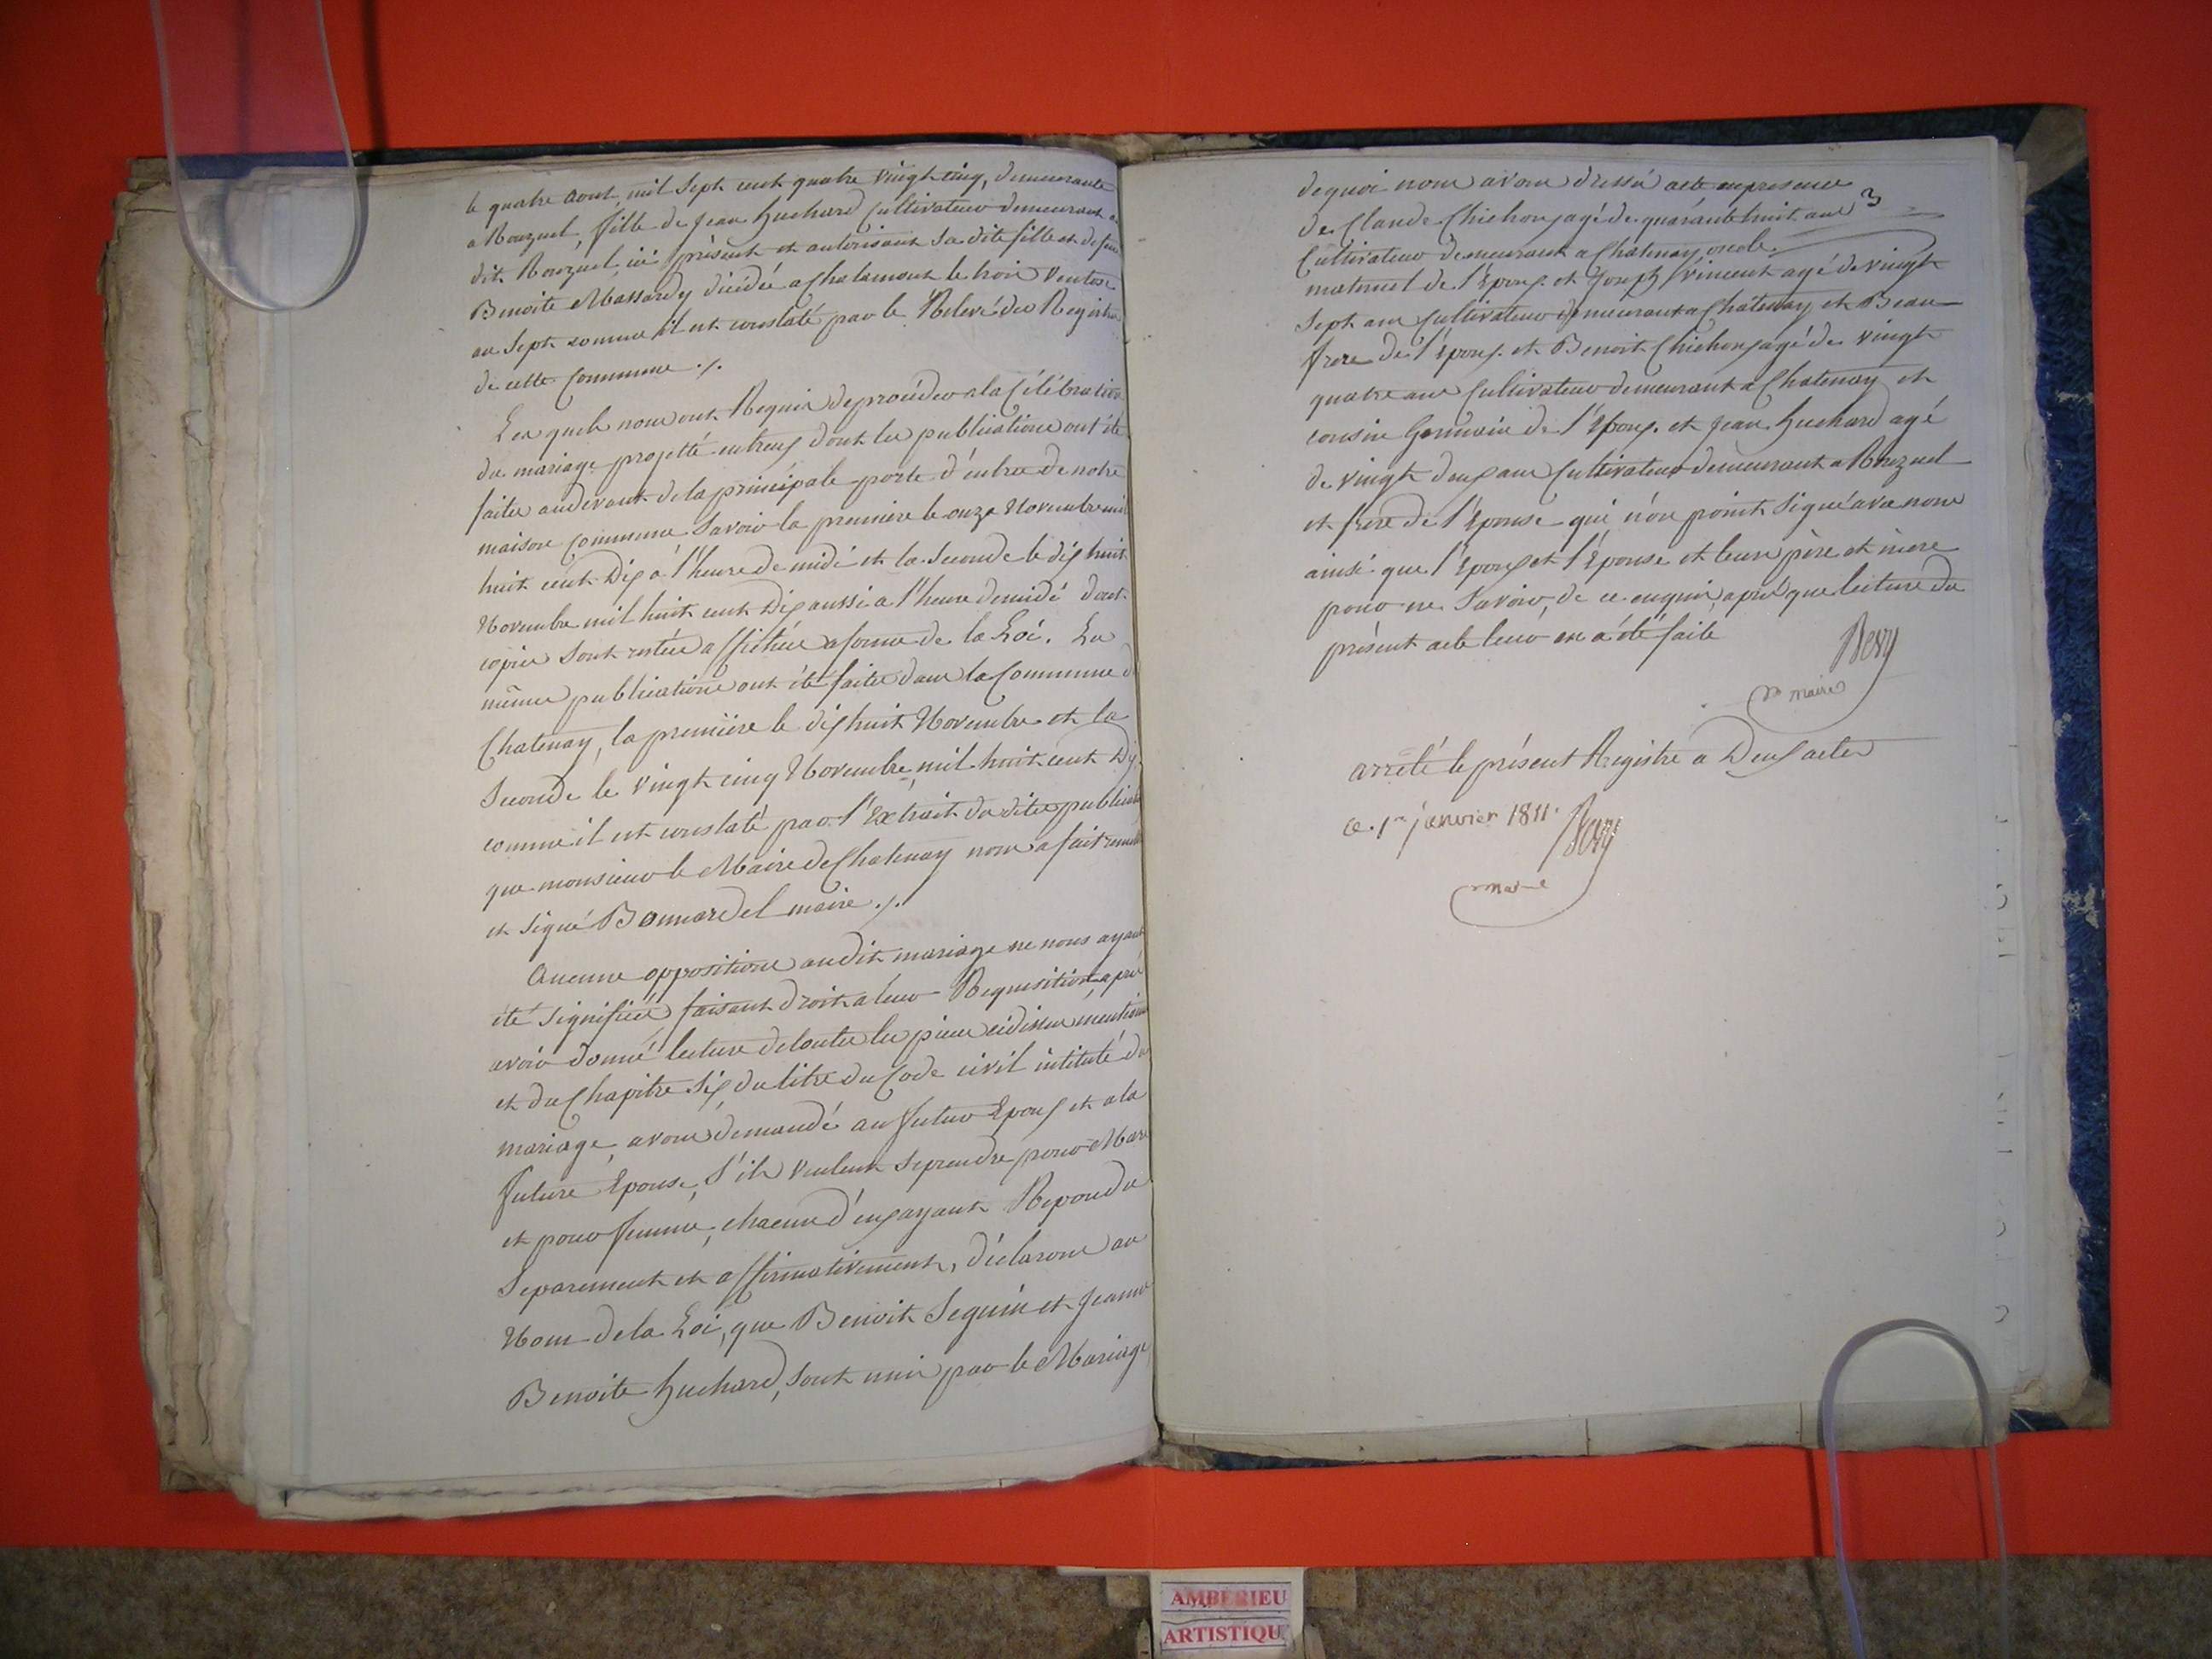 le quatre aout, mil Sept cent quatre vingt cinq, demeurante
a Ronzuel, fille de Jean huchard Cultivateur demeurant a
dit Ronzuel, ici présent et autorisant Sa dite fille et de feue
Benoite Massardy dicédée a Chalamont le trois Ventose
an Sept comme il est constaté par le Relevé des Registres
de cette Commune ./.
Les quels nous ont Requis de procéder a la Célébration
du mariage projetté entreux dont les publications ont été
faites audevant de la principale porte d'entrée de notre
maison Commune Savoir la première le onze Novembre mil
huit cent Dix a l'heure de midi et la Seconde le dix huit
Novembre mil huit cent Dix aussi a l'heure de midi dont
copies Sont restées affichées a forme de la Loi. Les
mêmes publications ont été faites dans la Commune de
Chatenay, la première le dix huit Novembre et la
Seconde le vingt cinq Novembre mil huit cent Dix
comme il est constaté par l'Extrait des dites publicat
que monsieur le Maire de Chatenay nous a fait remettre
et Signé Bonnardel maire ./.
Aucune opposition audit mariage ne nous ayant
été Signifiée faisant droit a leur Requisition, après
avoir donné lecture de toutes les pièces cidissus mention
et du Chapitre Six du titre du Code civil intitulé du
mariage, avons demandé au futur Epoux et a la
future Epouse, S'ils veulent se prendre pour Mari
et pour femme, chacun d'eux ayant Repondu
Separement et affirmativement, déclarons au
Nom de la Loi, que Benoit Seguin et Jeanne
Benoite huchard, Sont unis par le Mariage
de quoi nous avons dressé acte en presence
3
de Claude Chichoux agé de quarante huit ans
Cultivateur demeurant a Chatenay oncle
maternel de l'Epoux et Joseph Vincent agé de vingt
Sept ans Cultivateur demeurant a Chatenay et Beau
frere de l'époux et Benoit Chichoux agé de vingt
quatre ans Cultivateur demeurant a Chatenay et
cousin Germain de l'Epoux et Jean huchard agé
de vingt deux ans Cultivateur demeurant a Ronzuel
et frere de l'Epouse qui n'on point Signé avec nous
ainsi que l'Epoux et l'Epouse et leurs père et mere
pour ne Savoir, de ce enquis, après que lecture du
présent acte leur en a été faite
Bery
maire
arrété le présent Registre a Deux actes
ce 1er janvier 1811. Bery
maire
AMBERIEU
ARTISTIQU